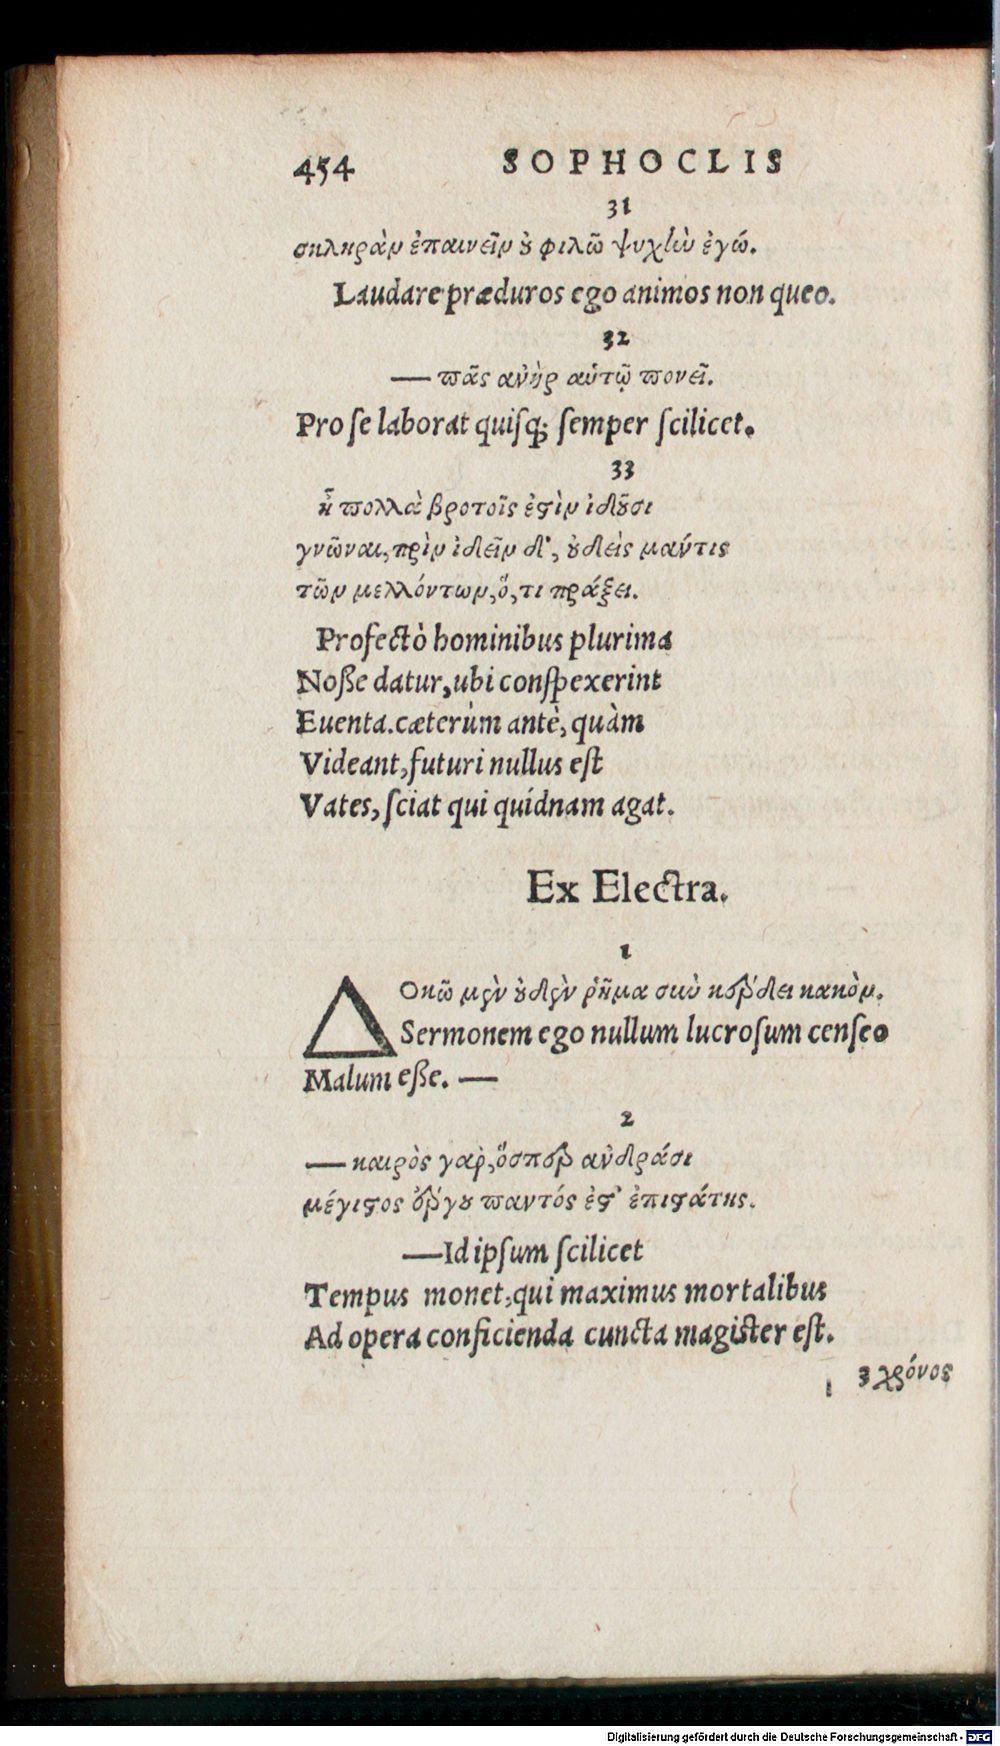 454 SOPHOCLIS
31
σκληρὰν ἐπαινεῖν ȣ φιλῶ ψυχὴν ἐγώ.
Laudare præduros ego animos non queo.
32
— πᾶς ἀνὴρ αὑτῷ πονεῖ.
Pro ſe laborat quiſq; ſemper ſcilicet.
33
ἦ πολλὰ βροτοῖς ἐϛὶν ἰδοῦσι
γνῶναι, πρὶν ἰδεῖν δ', ȣδεὶς μάντις
τῶν μελλόντων, ὅ, τι πράξει.
Profectò hominibus plurima
Noße datur, ubi conſpexerint
Euenta. cæterùm antè, quàm
Videant, futuri nullus eſt
Vates, ſciat qui quidnam agat.
Ex Electra.
1
ΔΟκῶ μὲν ȣδὲν ῥῆμα σὺν κέρδει κακὸν.
Sermonem ego nullum lucroſum cenſeo
Malum eße. —
2
— καιρὸς γὰρ, ὅσπερ ἀνδράσι
μέγιϛος ἔργȣ παντός ἐϛ' ἐπιϛάτης.
— Id ipſum ſcilicet
Tempus monet, qui maximus mortalibus
Ad opera conficienda cuncta magister eſt.
3 χρόνος
Digitalisierung gefördert durch die Deutsche Forschungsgemeinschaft - DFG